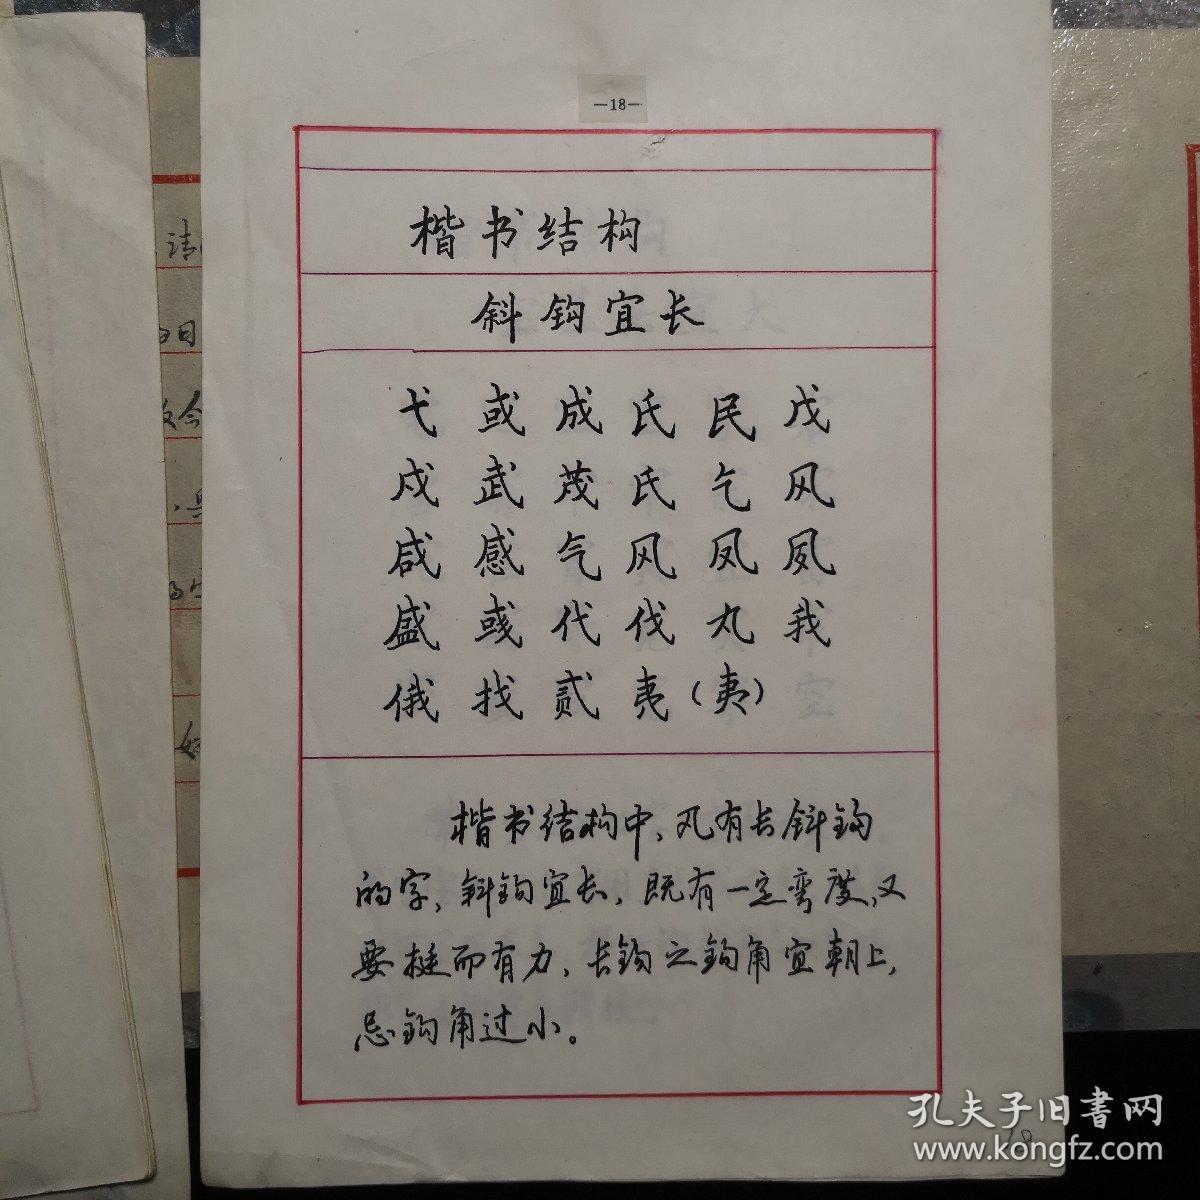 —18—
楷书结构
斜钩宜长
弋 或 成 氏 民 戊
戍 武 茂 氏 乞 风
咸 感 气 风 凤 夙
盛 彧 代 伐 丸 我
俄 找 贰 夷(夷)
楷书结构中,凡有长斜钩
的字,斜钩宜长,既有一定弯度,又
要挺而有力,长钩之钩角宜朝上,
忌钩角过小。
孔夫子旧書网
www.kongfz.com